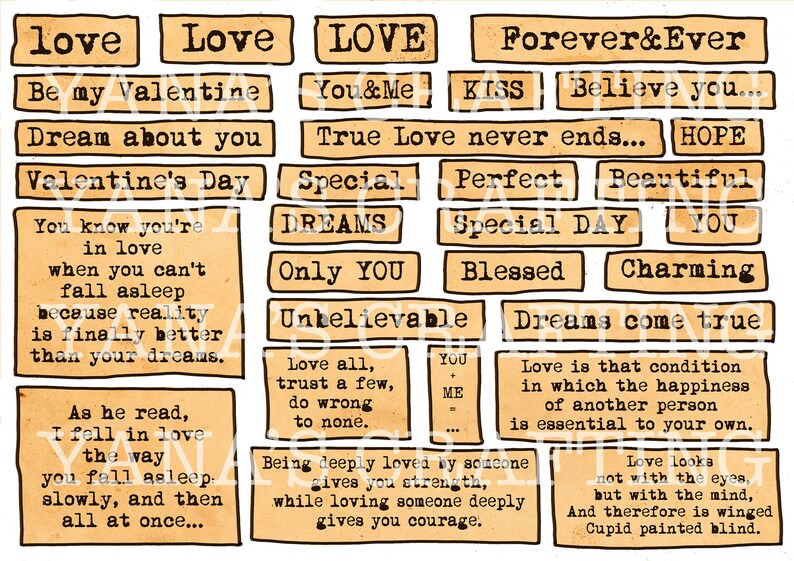 love
Love
LOVE
Forever&Ever
Be my Valentine
You&Me
KISS
Believe you...
Dream about you
True Love never ends...
HOPE
Valentine's Day
Special
Perfect
Beautiful
You know you're
in love
when you can't
fall asleep
because reality
is finally better
than your dreams.
DREAMS
Special DAY
YOU
Only YOU
Blessed
Charming
Unbelievable
Dreams come true
Love all,
trust a few,
do wrong
to none.
YOU
+
ME
=
...
Love is that condition
in which the happiness
of another person
is essential to your own.
As he read,
I fell in love
the way
you fall asleep
slowly, and then
all at once...
Being deeply loved by someone
gives you strength,
while loving someone deeply
gives you courage.
Love looks
not with the eyes,
but with the mind,
And therefore is winged
Cupid painted blind.
YANA'S CRAFTING
YANA'S CRAFTING
YANA'S CRAFTING
YANA'S CRAFTING